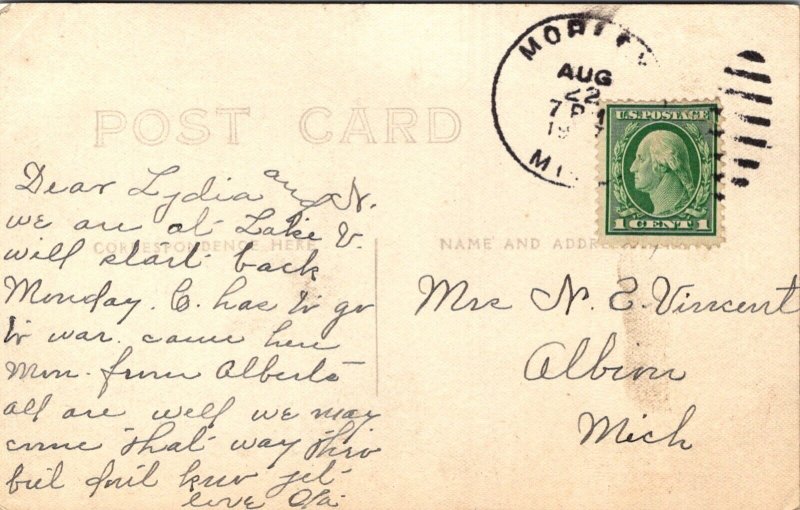 POST CARD
MORLEY
AUG
22
7 P
19
MI
U.S. POSTAGE
1 CENT 1
CORRESPONDENCE HERE
NAME AND ADDRESS
Dear Lydia and N.
we are at Lake V.
will start back
Monday. C. has to go
to war. came here
Mon. from Alberta
all are well we may
come that way thro
but don't know yet
love
Mrs N. E. Vincent
Albion
Mich